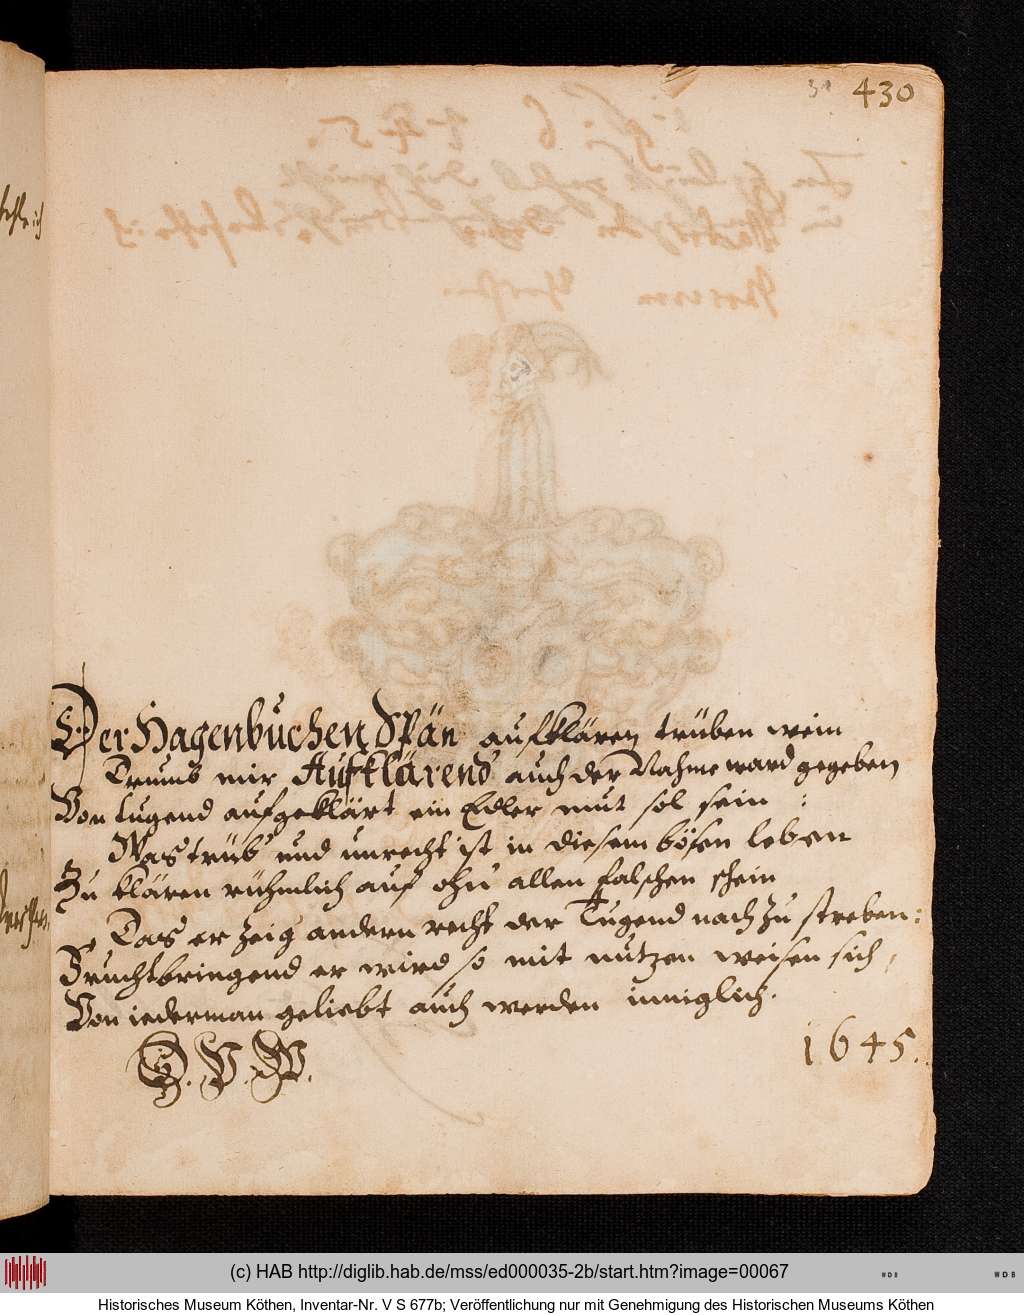 430
Der Hagenbuchen Spän aufklären trüben wein
Drumb mir Aufklärend auch der Nahme ward gegeben
Von tugend aufgeklärt ein Edler mut sol sein :
Was trüb' und unrecht ist in diesem bösen leben
Zu klären rühmlich auf ohn' allen falschen schein
Das er zeig andern recht der Tugend nach zu streben:
Fruchtbringend er wird so mit nutzen weisen sich,
Von iederman geliebt auch werden inniglich.
1645.
(c) HAB http://diglib.hab.de/mss/ed000035-2b/start.htm?image=00067
WDB
WDB
Historisches Museum Köthen, Inventar-Nr. V S 677b; Veröffentlichung nur mit Genehmigung des Historischen Museums Köthen